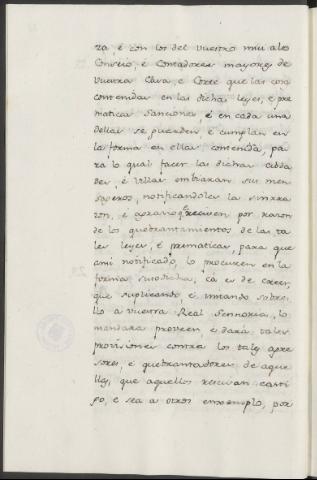 za, é con los del vuestro mui alto
Consejo, é Contadores mayores de
vuestra Casa, e Corte que las cosas
contenidas en las dichas Leyes, e pre
maticas Sanciones, é en cada una
dellas se guarden, é cumplan en
la forma en ellas contenida, pa
ra lo qual facer las dichas cibda
des, é villas embiaran sus men
sageros, notificandoles la sinrra
zon, é agravio q.e reciven por razon
de los quebrantamientos de las ta
les leyes, é prematicas, para que
ami notificado, lo procuren en la
forma susodicha, cá es de creer,
que suplicando é instando sobre
llo a vuestra Real Sennoria, lo
mandara proveer, e dará tales
provisiones contra los tales agre
sores, é quebrantadores de aque
llas, que aquellos rescivan casti
go, e sea a otros enxemplo, por